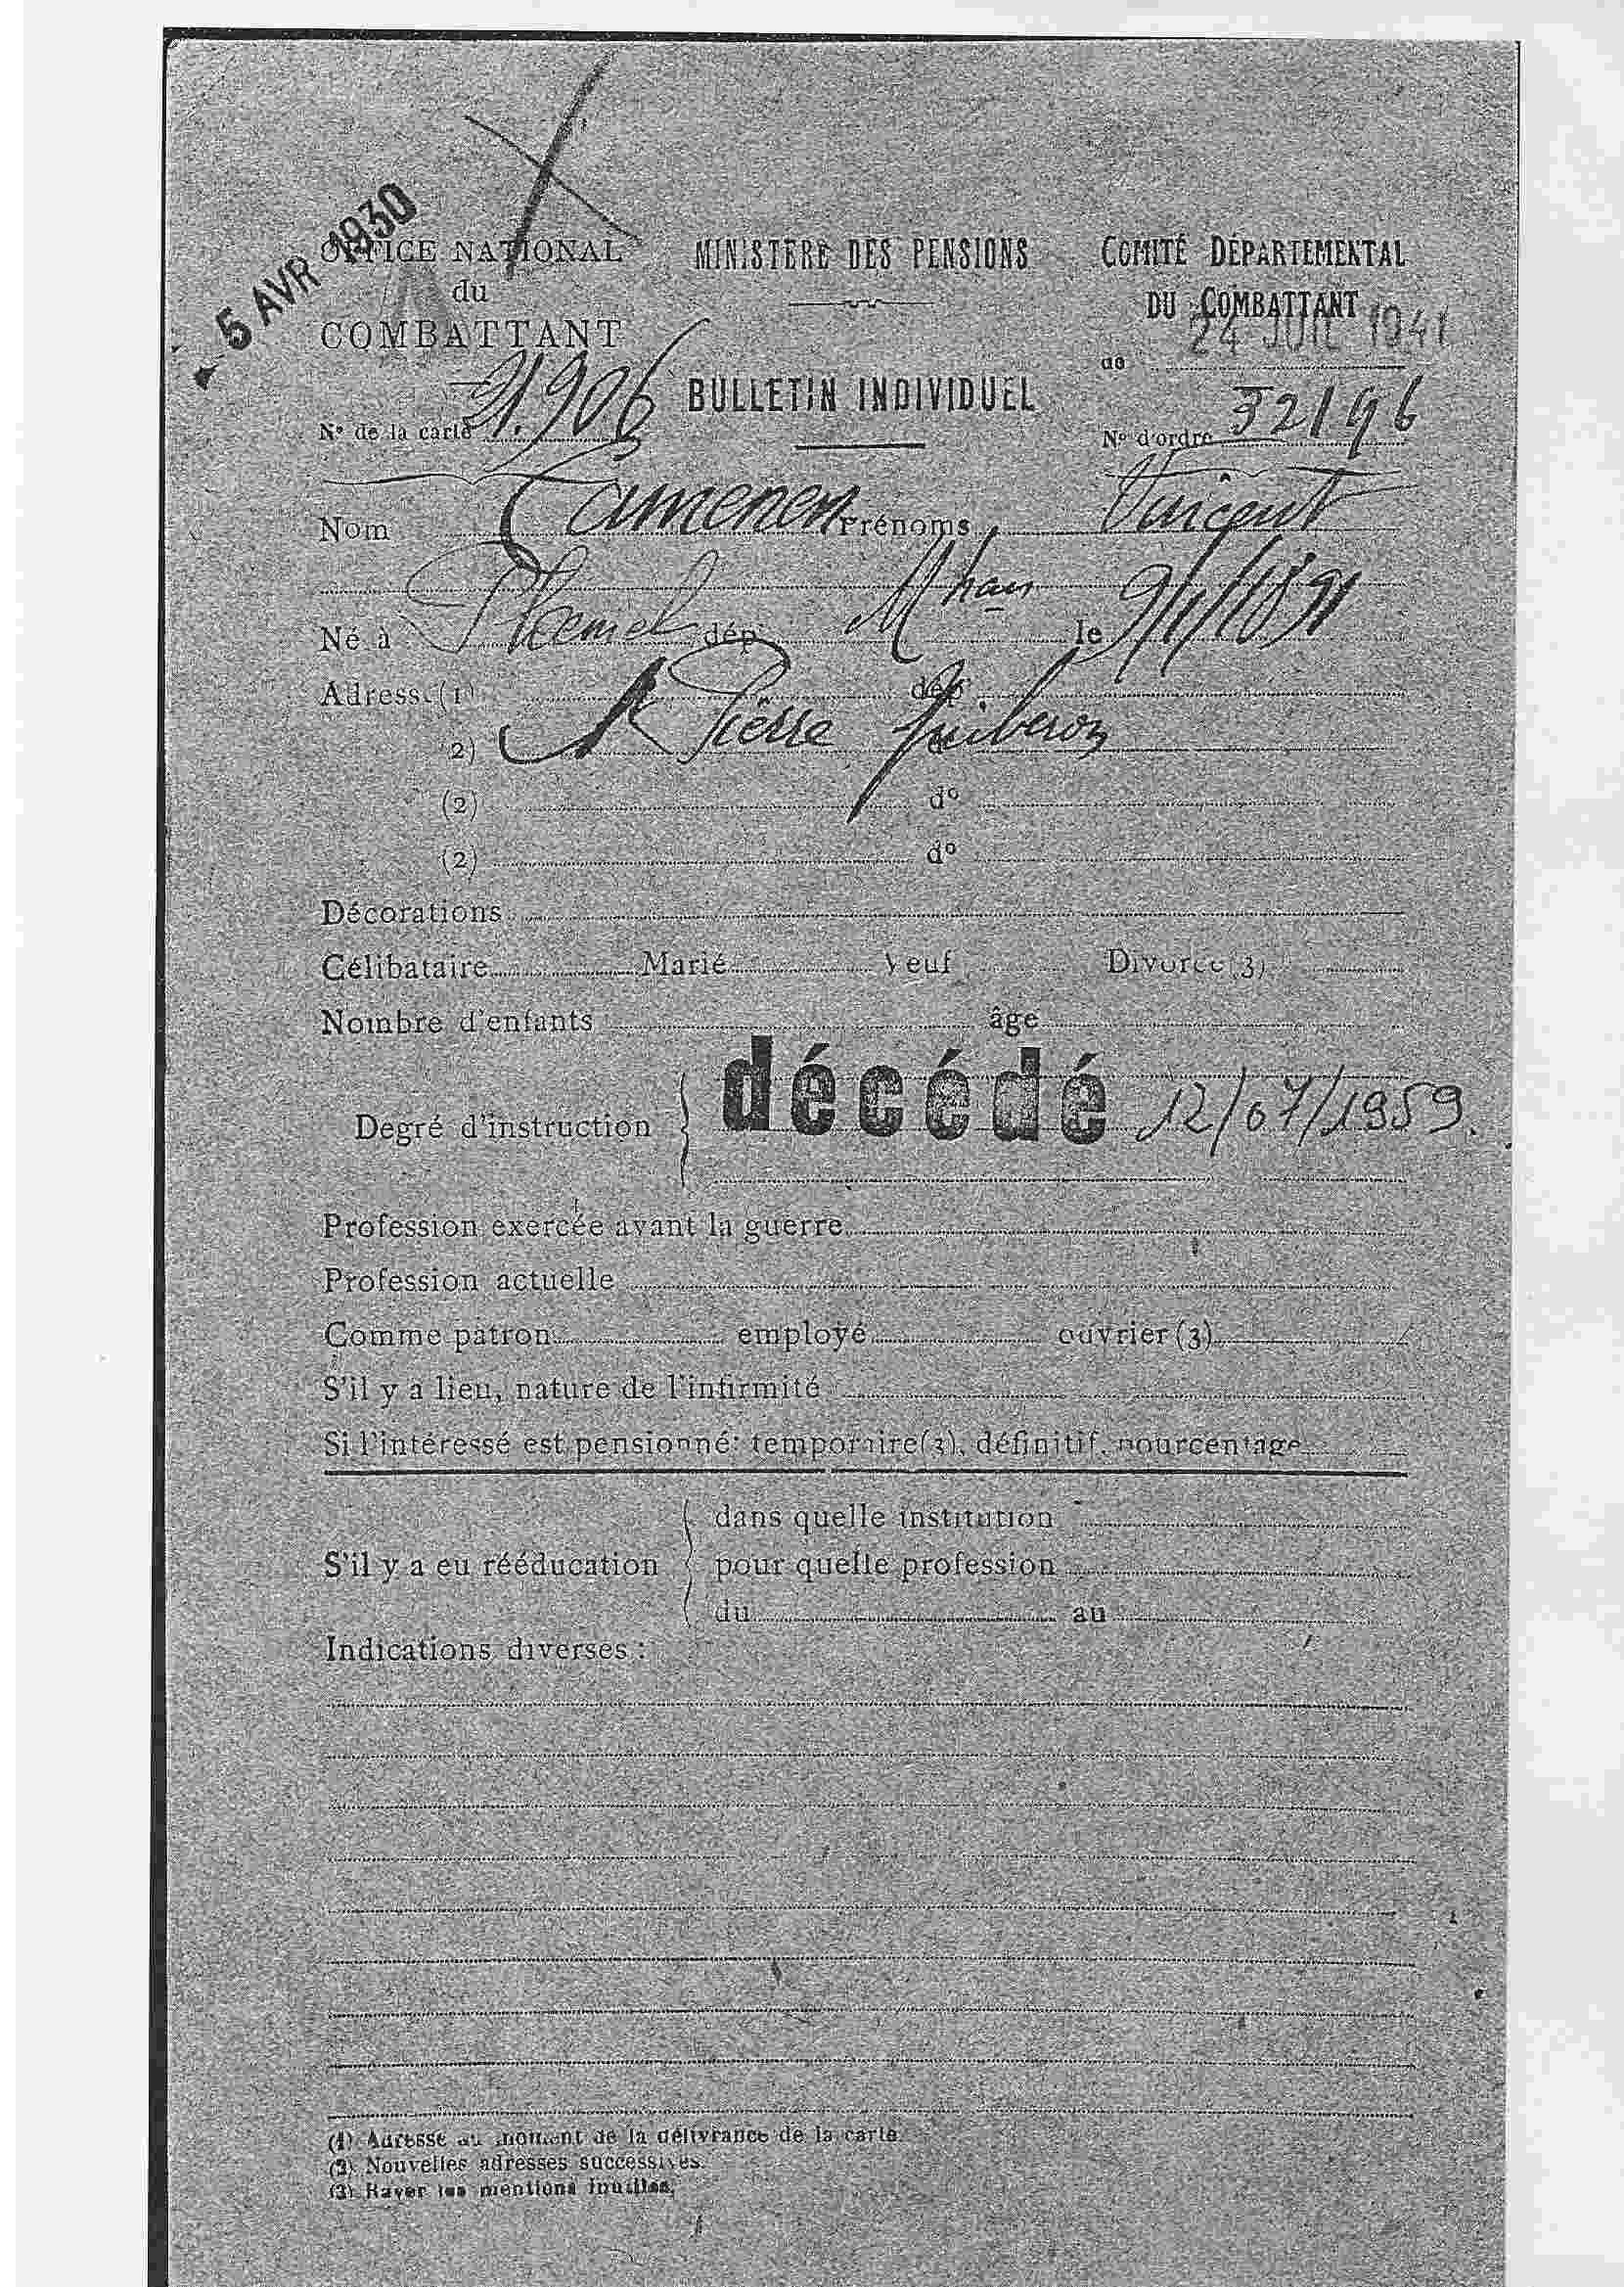 - 5 AVR 1930
OFFICE NATIONAL
du
COMBATTANT
N° de la carte 31.906
MINISTERE DES PENSIONS
BULLETIN INDIVIDUEL
COMITÉ DÉPARTEMENTAL
DU COMBATTANT
24 JUIL 1941
de
N° d'ordre 32196
Nom Camenen Prénoms Vincent
Né à dép. Mhan le 9/1/1891
Adresse (1) dép
(2) St Pierre Quiberon
(2) d°
(2) d°
Décorations
Célibataire Marié Veuf Divorcé (3)
Nombre d'enfants âge
Degré d'instruction décédé 12/07/1959.
Profession exercée avant la guerre
Profession actuelle
Comme patron employé ouvrier (3)
S'il y a lieu, nature de l'infirmité
Si l'intéressé est pensionné: temporaire (3), définitif, pourcentage
S'il y a eu rééducation
dans quelle institution
pour quelle profession
du au
Indications diverses :
(1) Adresse au moment de la délivrance de la carte.
(2) Nouvelles adresses successives.
(3) Rayer les mentions inutiles.